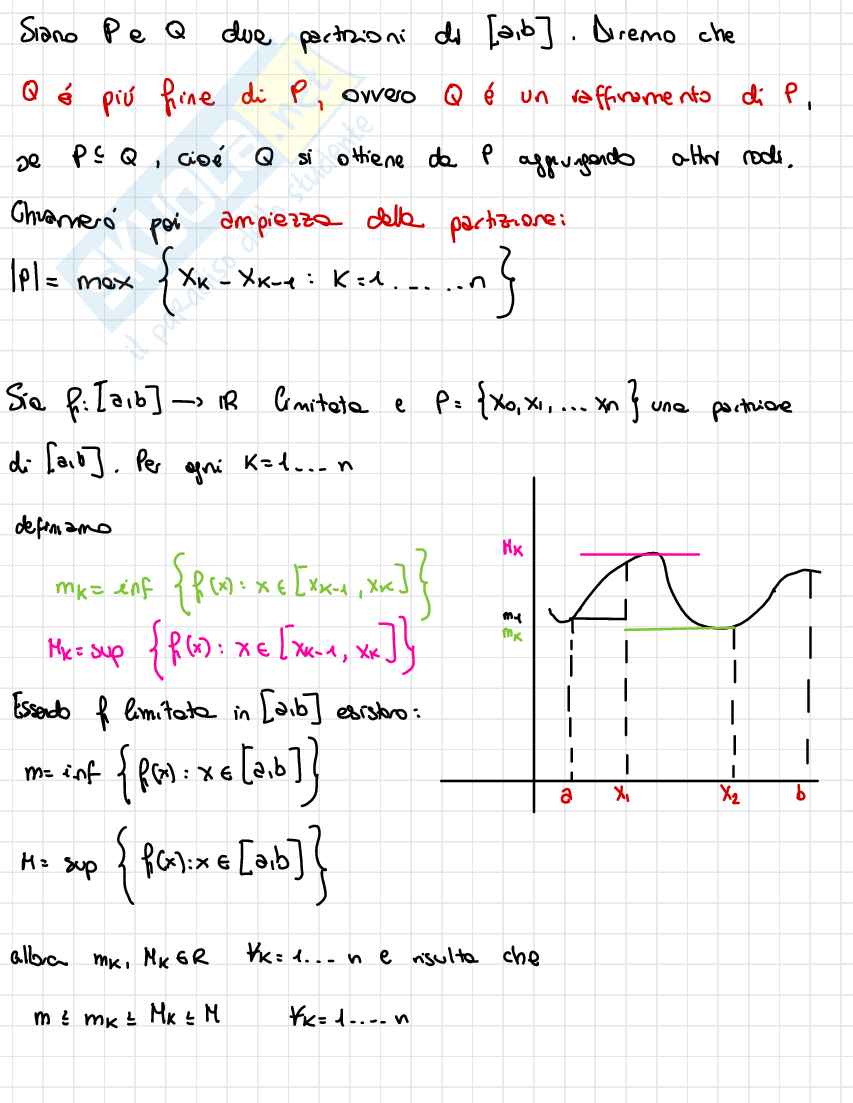 Siano P e Q due partizioni di [a,b]. Diremo che
Q é piú fine di P, ovvero Q é un raffinamento di P,
se P ⊆ Q, cioé Q si ottiene da P aggiungendo altri nodi.
Chiameró poi ampiezza della partizione:
|P| = max {x_K - x_{K-1} : K=1.......n}
Sia f: [a,b] → IR limitata e P = {x_0, x_1, ... x_n} una partizione
di [a,b]. Per ogni K=1... n
definiamo
m_K = inf {f(x) : x ∈ [x_{K-1}, x_K]}
M_K = sup {f(x) : x ∈ [x_{K-1}, x_K]}
Essendo f limitata in [a,b] esistono:
m = inf {f(x) : x ∈ [a,b]}
M = sup {f(x) : x ∈ [a,b]}
allora m_K, M_K ∈ R ∀K=1... n e risulta che
m ≤ m_K ≤ M_K ≤ M ∀K=1.... n
M_K
m_1
m_K
a x_1 x_2 b
SKUOLA.net
il paradiso dello studente